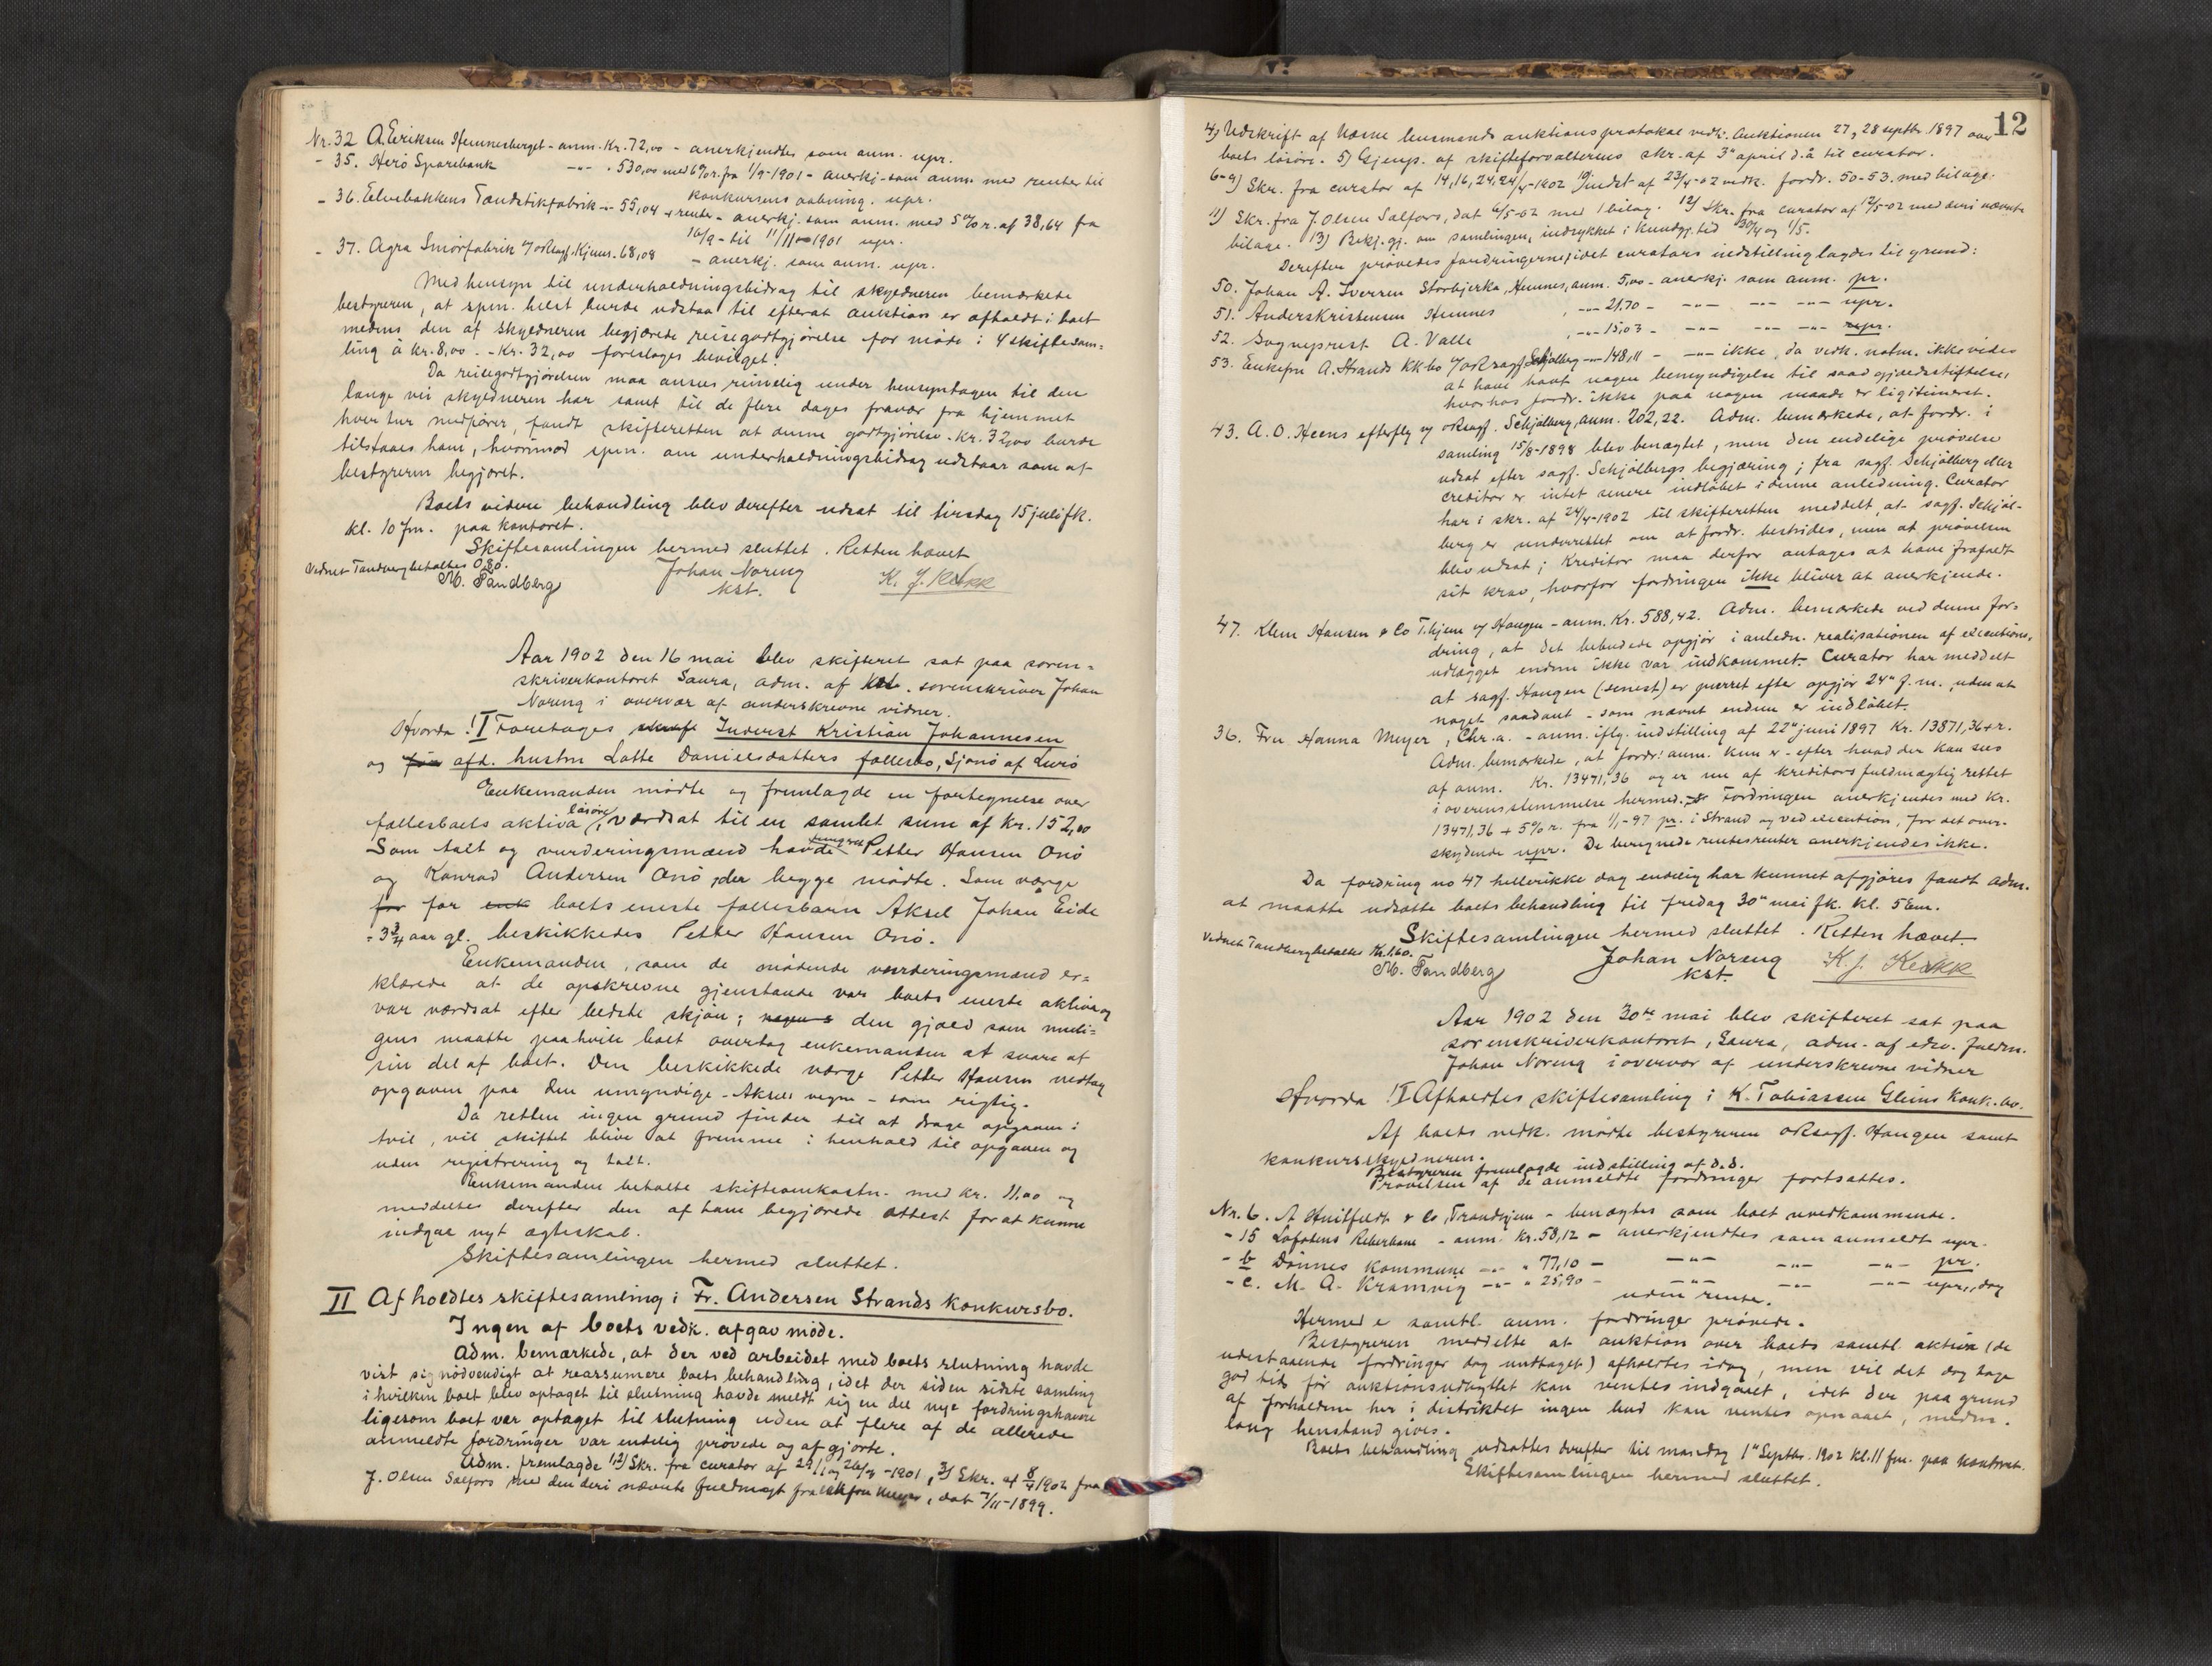 Nr. 32 A. Eriksen Hemnesberget - anm. Kr. 72,00 - anerkjendtes som anm. upr.
- 35. Herø Sparebank -"- - 530,00 med 6% r. fra 1/9-1901 - anerkj. som anm. med renter til
konkursens aabning. upr.
- 36. Elvebakkens Tændstikfabrik -"- 55,04 + renter - anerkj. som anm. med 5% r. af 38,64 fra
16/9 - til 11/11 1901 upr.
- 37. Agra Smörfabrik v/ oRsagf. Kjeus. 68,08 - anerkj. som anm. upr.
Med hensyn til underholdningsbidrag til skyldneren bemærkede
bestyreren, at spm. helst burde udstaa til efterat auktion er afholdt i boet
medens den af skyldneren begjærede reisegodtgjörelse for möde i 4 skiftesam=
ling á kr. 8,00. - Kr. 32,00 foreslages bevilget.
Da reisegodtgjörelsen maa ansees rimelig under hensyntagen til den
lange vei skyldneren har samt til de flere dages fravær fra hjemmet
hver tur medfører, fandt skifteretten at denne godtgjörelse - Kr. 32,00 burde
tilstaaes ham, hvorimod spm. om underholdningsbidrag udstaar som af
bestyreren begjæret.
Boets videre behandling blev derefter udsat til tirsdag 15 juli fk.
kl. 10 fm. paa kontoret.
Skiftesamlingen hermed sluttet. Retten hævet
Vidnet Tandberg betaltes 0,80.
M. Tandberg Johan Noreng K. J. Kekk
kst.
Aar 1902 den 16 mai blev skifteret sat paa soren=
skriverkontoret Saura, adm. af kst. sorenskriver Johan
Noreng i overvær af underskrevne vidner.
Hvorda! I Foretages skifte Inderst Kristian Johannesen
og fra afd. hustru Lotte Danielsdatters fællesbo, Sjonö af Lurö
Enkemanden mödte og fremlagde en fortegnelse over
fællesboets aktiva løsöre, værdsat til en samlet sum af kr. 152,00
Som talt og vurderingsmænd havde fungeret Petter Hansen Onö
og Konrad Andersen Onö, der begge mödte. Som værge
for for enk boets eneste fællesbarn Aksel Johan Eide
- 3 3/4 aar gl. beskikkedes Petter Hansen Onö.
Enkemanden, som de mödende vurderingsmænd er=
klærede at de opskrevne gjenstande var boets eneste aktiva og
var værdsat efter bedste skjön; nogen s den gjæld som muli=
gens maatte paahvile boet overtog enkemanden at svare af
sin del af boet. Den beskikkede værge Petter Hansen vedtog
opgaven paa den umyndige - Aksels vegne - som rigtig.
Da retten ingen grund finder til at drage opgaven i
tvil, vil skiftet blive at fremme i henhold til opgaven og
uden registrering og talt.
Enkemanden betalte skifteomkostn. med kr. 11,00 og
meddeltes derefter den af ham begjærede attest for at kunne
indgaa nyt ægteskab.
Skiftesamlingen hermed sluttet.
II Afholdtes skiftesamling i Fr. Andersen Strands konkursbo.
Ingen af boets vedk. afgav möde.
Adm. bemærkede, at der ved arbeidet med boets slutning havde
vist sig nödvendigt at reassumere boets behandling, idet der siden sidste samling
i hvilken boet blev optaget til slutning havde meldt sig en del nye fordringshavere
ligesom boet var optaget til slutning uden at flere af de allerede
anmeldte fordringer var endelig prövede og afgjorte.
Adm. fremlagde 1,2) Skr. fra curator af 29/1 og 26/4 -1901, 3) Skr. af 8/4 1902 fra
J. Olsen Salfors med den deri nævnte fuldmagt fra enkefru Meyer, dat 7/11-1899.
12
4) Udskrift af Næsne lensmands auktionsprotokol vedk. Auktionen 27, 28 septbr. 1897 over
boets lösöre. 5) Gjenp. af skifteforvalterens skr. af 3" april d. å til curator.
6-9) Skr. fra curator af 14, 16, 24, 24/4-1902 10) indst af 23/4-02 vedk. fordr. 50-53. med bilage.
11) Skr. fra J. Olsen Salfors, dat 6/5-02 med 1 bilag. 12) Skr. fra curator af 12/5-02 med deri nævnte
bilage. 13) Bekj. gj. om samlingen, indrykket i Kundgj. tid 30/4 og 1/5.
Derefter prövedes fordringerne, idet curators indstilling lagdes til grund:
50. Johan A. Iversen Storbjerka, Hemnes, anm. 5,00 - anerkj. som anm. pr.
51. Anders Kristensen Hemnes, -"- 21,70 - -"- -"- -"- upr.
52. Sogneprest A. Valle, -"- 15,03 - -"- -"- -"- upr.
53. Enkefru A. Strands KKbo v/ oRsagf. Schjölberg -"- 148,11 - -"- ikke, da vedk. ikke vides
at have havt nogen bemyndigelse til saad gjældsstiftelse,
hvorhos fordr. ikke paa nogen maade er ligitimeret.
43. A. O. Heens efterflg v/ oRsagf. Schjölberg anm. 202,22. Adm. bemærkede, at fordr. i
samling 15/8-1898 blev benægtet, men den endelige prövelse
udsat efter sagf. Schjölbergs begjæring; fra sagf. Schjölberg eller
creditor er intet senere indlöbet i denne anledning. Curator
har i skr. af 24/4-1902 til skifteretten meddelt, at sagf. Schjöl-
berg er underrettet om at fordr. bestrides, men at prövelsen
blev udsat; Kreditor maa derfor antages at have frafaldt
sit krav, hvorfor fordringen ikke bliver at anerkjende.
47. Klem Hansen & Co T.hjem v/ Haugen - anm. Kr. 588,42. Adm. bemærkede ved denne for=
dring, at det bebudede opgjör i anledn. realisationen af executions=
udlægget endnu ikke var indkommet. Curator har meddelt
at sagf. Haugen (senest) er purret efter opgjör 24" f. m., uden at
noget saadant - som nævnt endnu er indlöbet.
36. Fru Hanna Meyer, Chr.a. - anm. iflg. indstilling af 22" juni 1897 Kr. 13871,36 + r.
Adm. bemærkede, at fordr. anm. kun er - efter hvad der kan sees
af anm. Kr. 13471,36 og er nu af kreditors fuldmægtig rettet
i overensstemmelse hermed. Fordringen anerkjendes med Kr.
13471,36 + 5% r. fra 1/1-97 pr. i Strand og ved execution, for det over-
skydende upr. De beregnede rentesrenter anerkjendes ikke.
Da fordring no 47 heller ikke dag endelig har kunnet afgjöres fandt adm.
at maatte udsætte boets behandling til fredag 30" mai fk. kl. 5 Em.
Skiftesamlingen hermed sluttet. Retten hævet.
Vidnet Tandberg betaltes Kr. 1,60.
M. Tandberg Johan Noreng K. J. Kekk
kst.
Aar 1902 den 30te mai blev skifteret sat paa
sorenskriverkontoret, Saura, adm. af edsv. fuldm.
Johan Noreng i overvær af underskrevne vidner
Hvorda! I Afholdtes skiftesamling i K. Tobiassen Gleins Konk.bo.
Af boets vedk. mödte bestyreren oRsagf. Haugen samt
konkursskyldneren.
Bestyreren fremlagde indstilling af d. d.
Prövelsen af de anmeldte fordringer fortsattes.
Nr. 6. A Huitfeldt & Co, Trondhjem - benægtes som boet uvedkommende.
- 15 Lofotens Reberbane - anm. Kr. 58,12 - anerkjendtes som anmeldt upr.
- b Dönnes kommune -"- " 77,10 - -"- -"- -"- pr.
- c. M. A. Kramvig -"- " 25,90 - -"- -"- -"- upr., dog
uden renter.
Hermed e samtl. anm. fordringer prövede.
Bestyreren meddelte at auktion over boets samtl. aktiva (de
udestaaende fordringer dog undtaget) afholdtes idag, men vil det dog tage
god tid för auktionsudbyttet kan ventes indgaaet, idet der paa grund
af forholdene her i distriktet ingen bud kan ventes opnaaet, medm.
lang henstand gives.
Boets behandling udsattes derefter til mandag 1" Septbr. 1902 kl. 11 fm. paa kontoret.
Skiftesamlingen hermed sluttet.